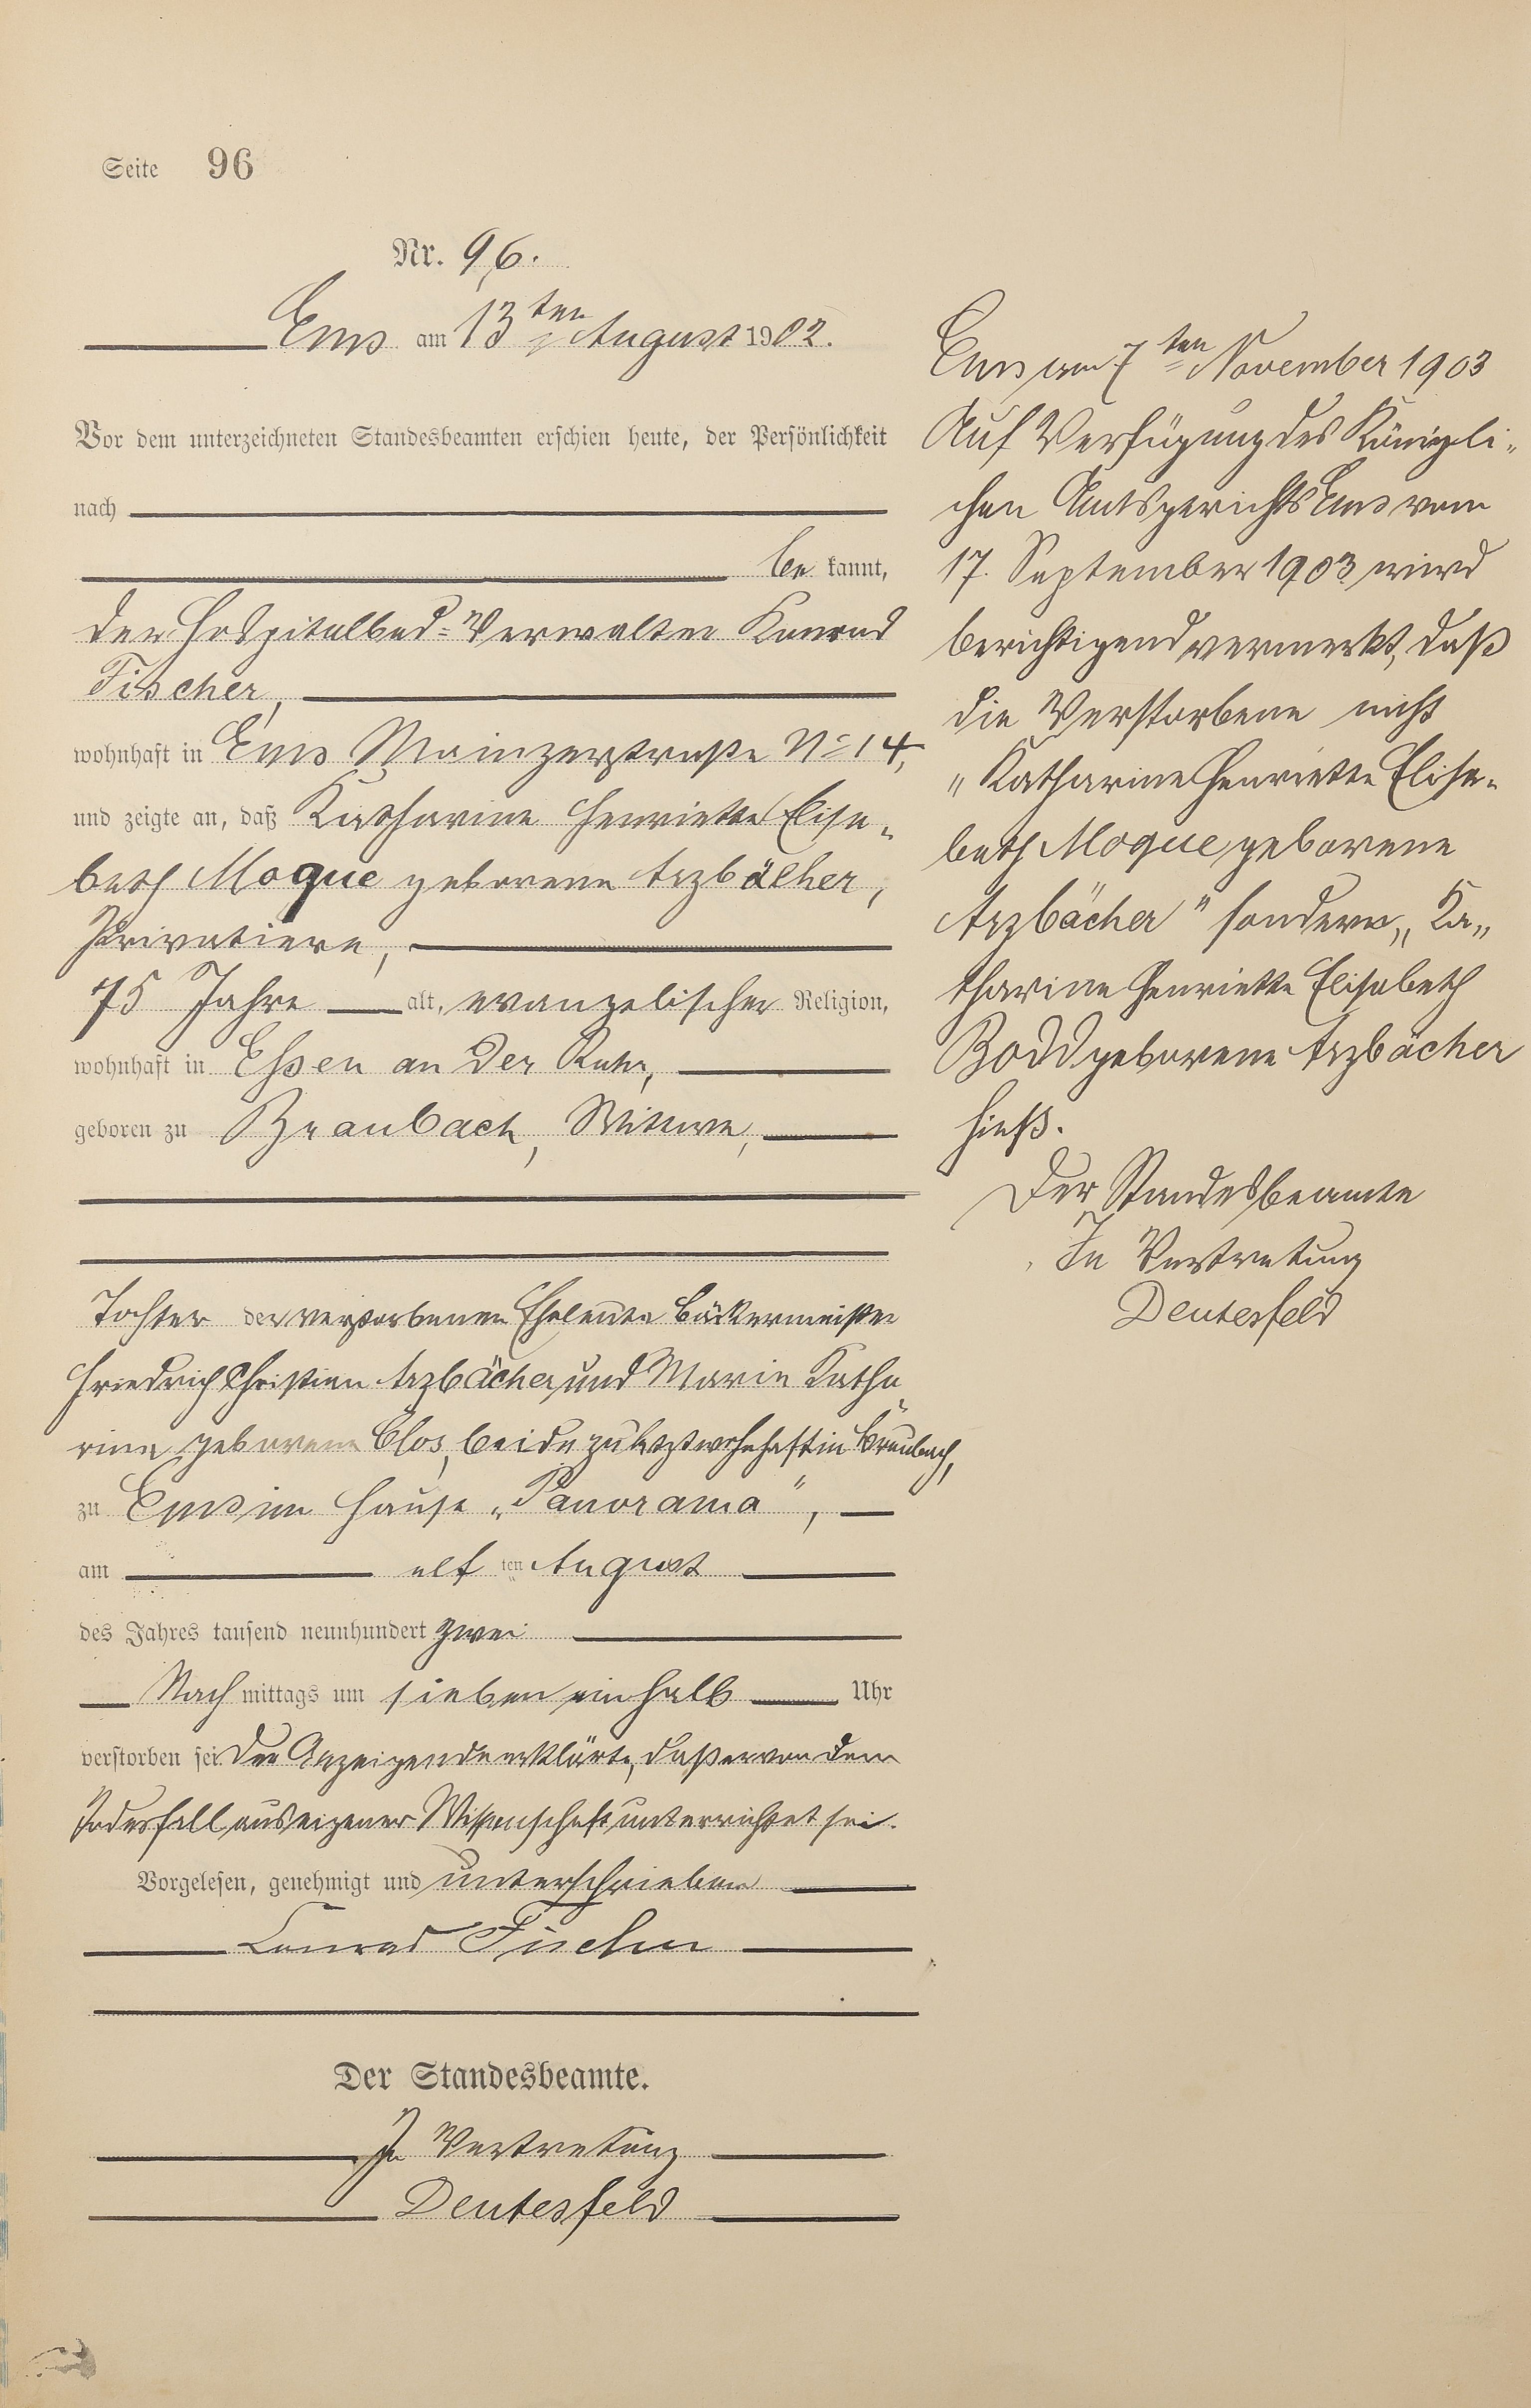 Seite 96
Nr. 96.
Ems am 13ten August 1902.
Vor dem unterzeichneten Standesbeamten erschien heute, der Persönlichkeit
nach
be kannt,
der Hospitalbad-Verwalter Konrad
Fischer,
wohnhaft in Ems Mainzerstraße No 14,
und zeigte an, daß Katharine Henriette Elisa-
beth Moque geborene Arzbächer,
Privatiere,
75 Jahre alt, evangelischer Religion,
wohnhaft in Essen an der Ruhr,
geboren zu Braubach, Wittwe,
Tochter der verstorbenen Eheleute Bäckermeister
Friedrich Christian Arzbächer und Marie Katha-
rina geborene Clos, beide zuletzt wohnhaft in Braubach,
zu Ems im Hause „Panorama",
am elf ten August
des Jahres tausend neunhundert zwei
Nach mittags um sieben ein halb Uhr
verstorben sei. Der Anzeigende erklärte, daß er von dem
Todesfall aus eigener Wissenschaft unterrichtet sei.
Vorgelesen, genehmigt und unterschrieben
Conrad Fischer
Der Standesbeamte.
In Vertretung
Deutesfeld
Ems am 7ten November 1903
Auf Verfügung des Königli-
chen Amtsgerichts Ems vom
17. September 1903 wird
berichtigend vermerkt, daß
die Verstorbene nicht
„Katharine Henriette Elisa-
beth Moque geborene
Arzbächer" sondern „Ka-
tharine Henriette Elisabeth
Bodd geborene Arzbächer
hieß.
Der Standesbeamte
In Vertretung
Deutesfeld